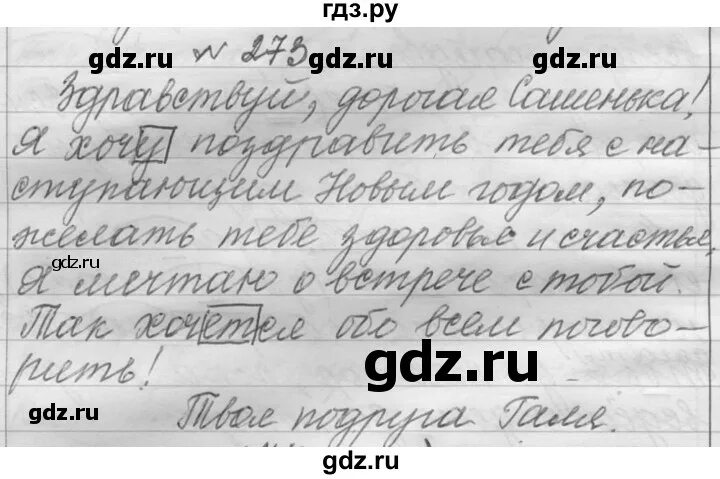 гдз.ру
gdz.ru
gdz.ru
№ 273
Здравствуй, дорогая Сашенька!
Я хочу поздравить тебя с на-
ступающим Новым годом, по-
желать тебе здоровья и счастья,
gdz.ru
Я мечтаю о встрече с тобой.
Так хочется обо всем погово-
рить!
gdz.ru
gdz.ru
Твоя подруга Галя.
gdz.ru